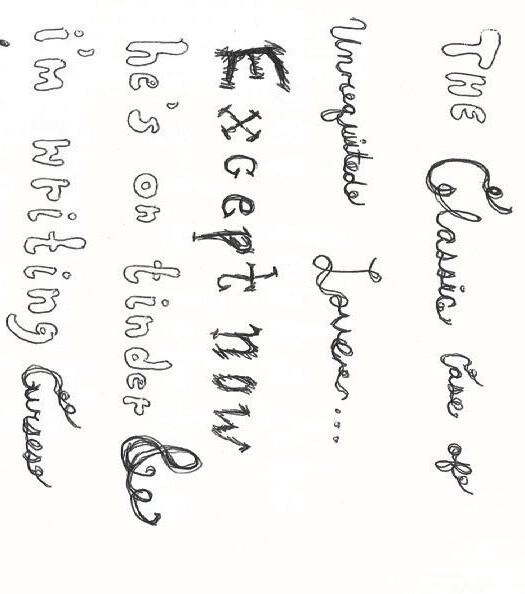 THE Classic case of
Unrequited Lover...
Except now
he's on tinder &
i'm writing Curses